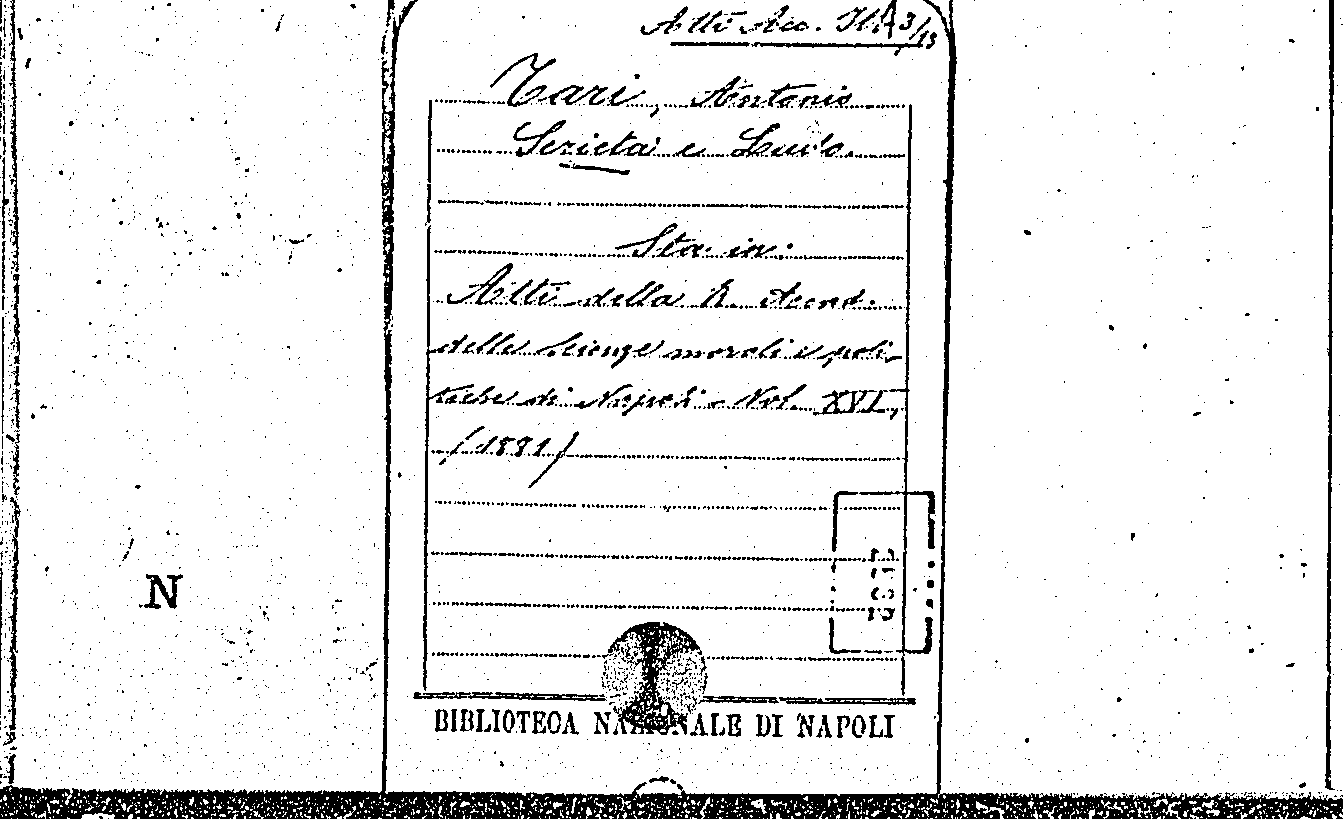 Atti Acc. A 3/13
Tari, Antonio
Serietà e Ludo.
Sta in:
Atti della R. Accad.
delle Scienze morali e poli-
tiche di Napoli - Vol. XVI,
(1881)
N
BIBLIOTECA NAZIONALE DI NAPOLI